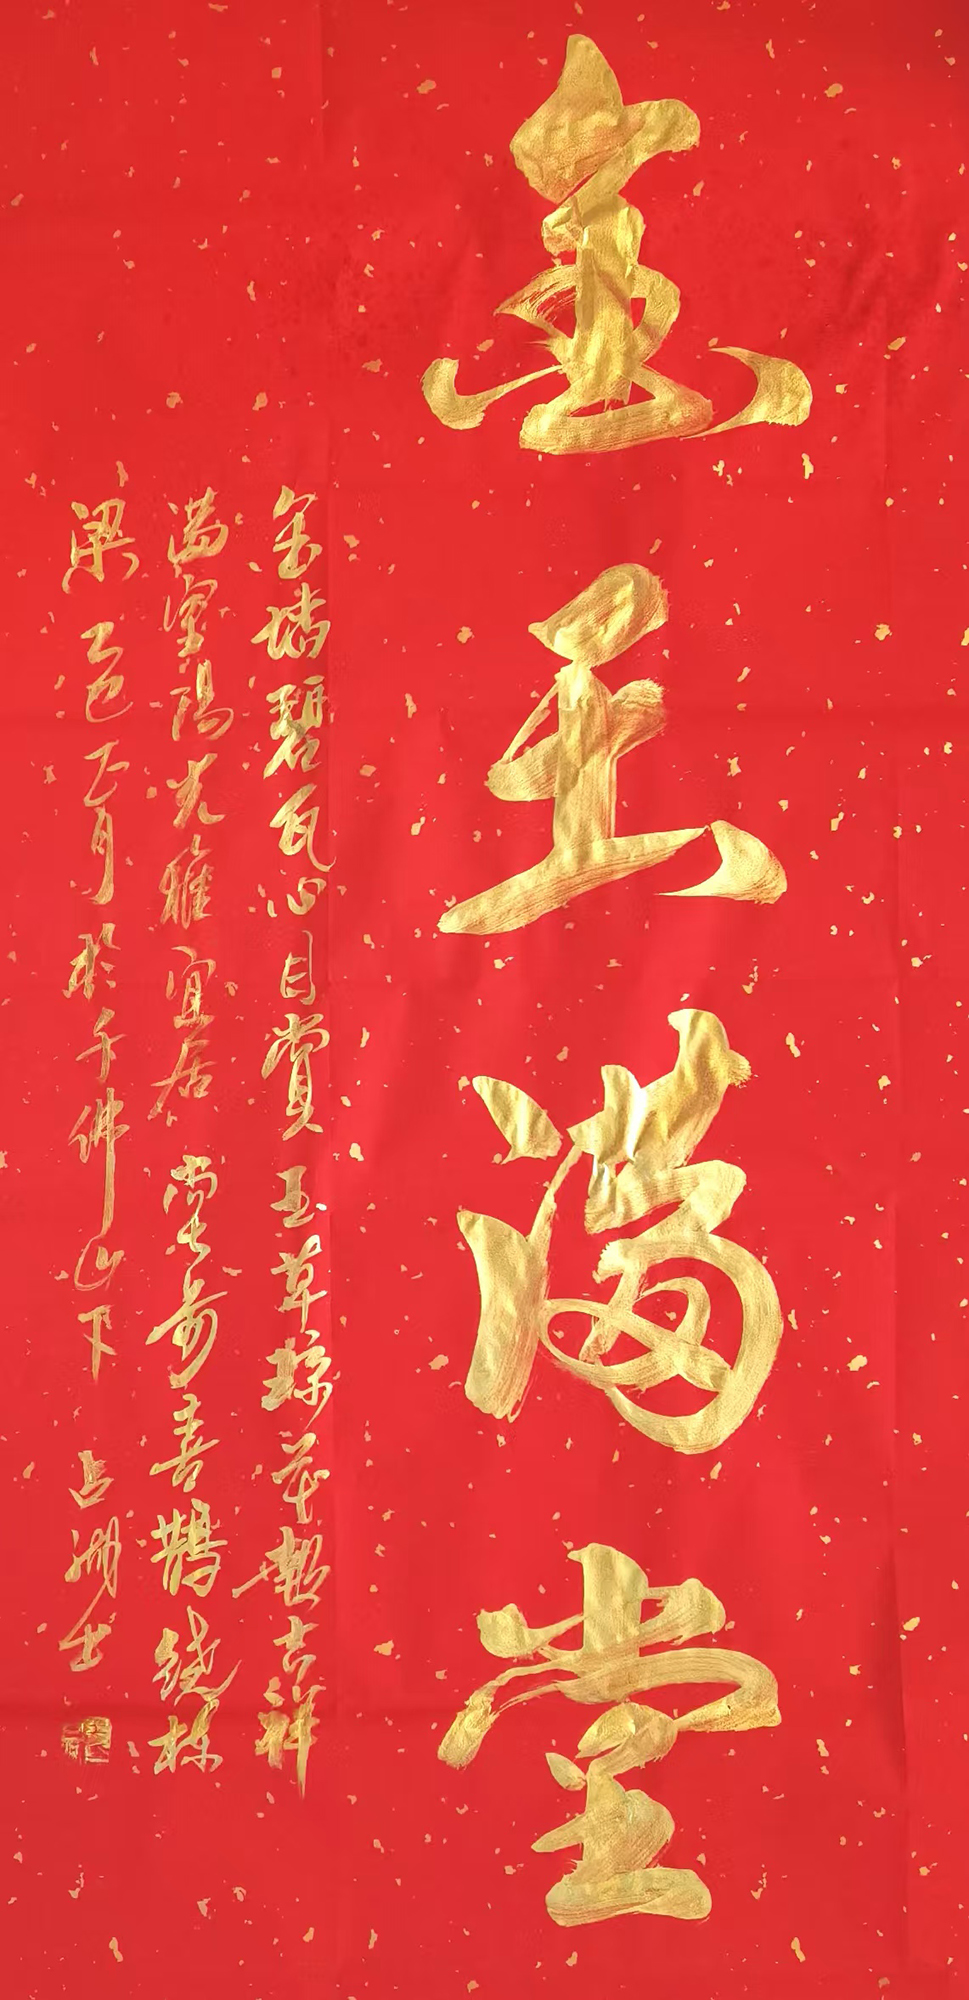 金玉满堂
金墙碧瓦心目赏玉草琼花報吉祥
满室陽光雅宜居堂前喜鹊绕栋
梁乙巳正月於千佛山下占洲书